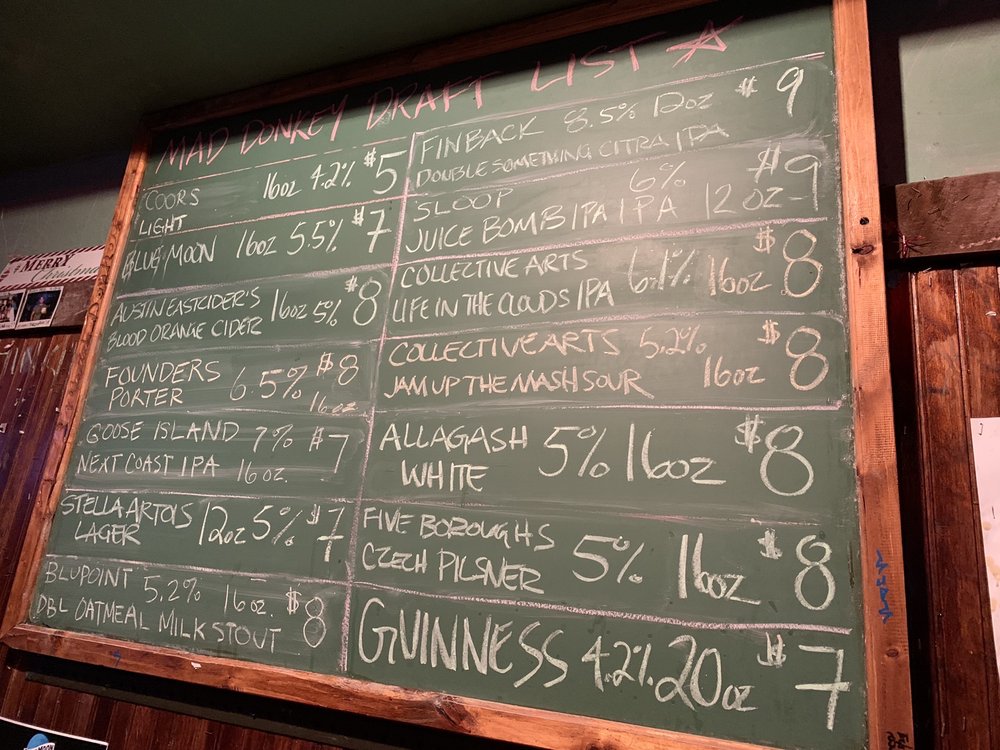 MAD DONKEY DRAFT LIST
COORS LIGHT 16oz 4.2% $5
BLUE MOON 16oz 5.5% $7
AUSTIN EASTCIDER'S
BLOOD ORANGE CIDER 16oz 5% $8
FOUNDERS
PORTER 6.5% $8
16oz
GOOSE ISLAND 7% $7
NEXT COAST IPA 16oz.
STELLA ARTOIS
LAGER 12oz 5% $7
BLUPOINT 5.2% 16oz. $8
DBL OATMEAL MILK STOUT
FINBACK 8.5% 12oz $9
DOUBLE SOMETHING CITRA IPA
SLOOP 6% $9
JUICE BOMB IPA IPA 12oz
COLLECTIVE ARTS
LIFE IN THE CLOUDS IPA 6.1% 16oz $8
COLLECTIVE ARTS 5.2% $8
JAM UP THE MASH SOUR 16oz
ALLAGASH
WHITE 5% 16oz $8
FIVE BOROUGHS
CZECH PILSNER 5% 16oz $8
GUINNESS 4.2% 20oz $7
MERRY
Christmas
MOON